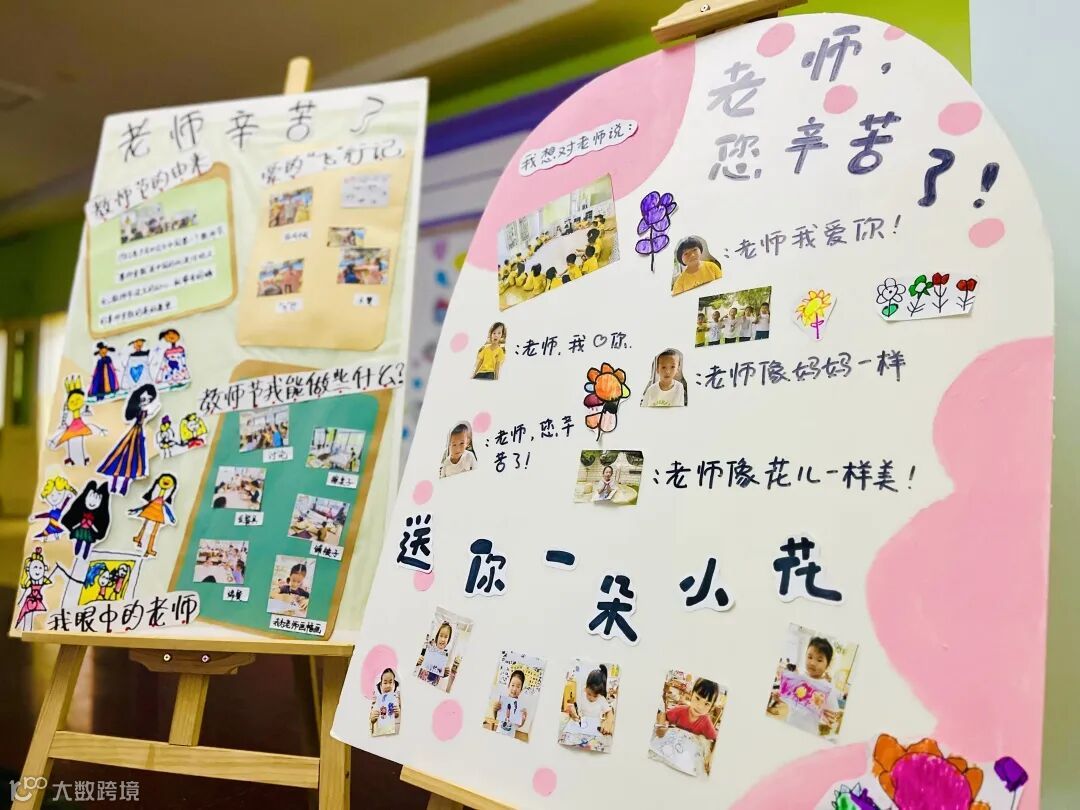 老师辛苦了
教师节的由来
爱的“飞”行记
教师节我能做些什么?
讨论
我为老师画幅画
我眼中的老师
老师,
您辛苦了!
我想对老师说:
:老师我爱你!
:老师,我♡你.
:老师像妈妈一样
:老师,您辛
苦了!
:老师像花儿一样美!
送你一朵小花
大数跨境